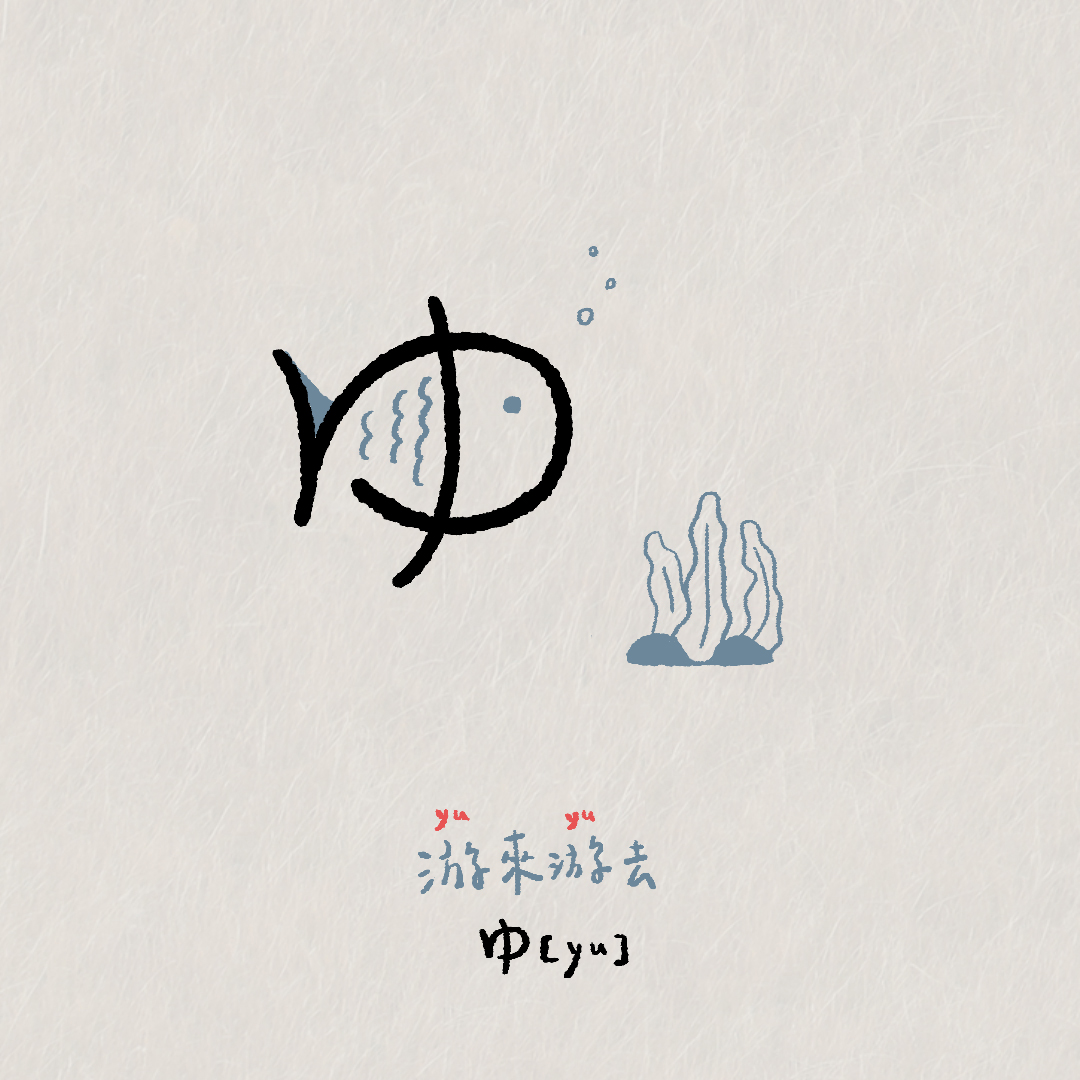 yu yu
游來游去
ゆ [yu]